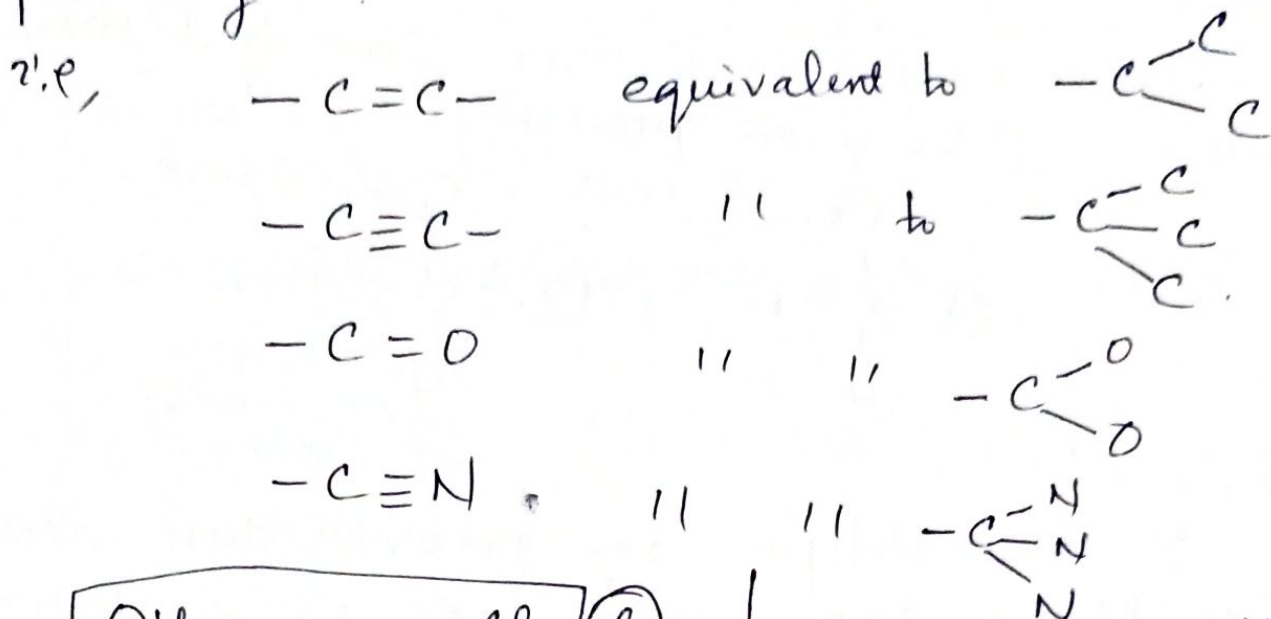 i.e, -C=C- equivalent to -C C C
-C≡C- " to -C C C C.
-C=O " " -C O O
-C≡N. " " -C N N N